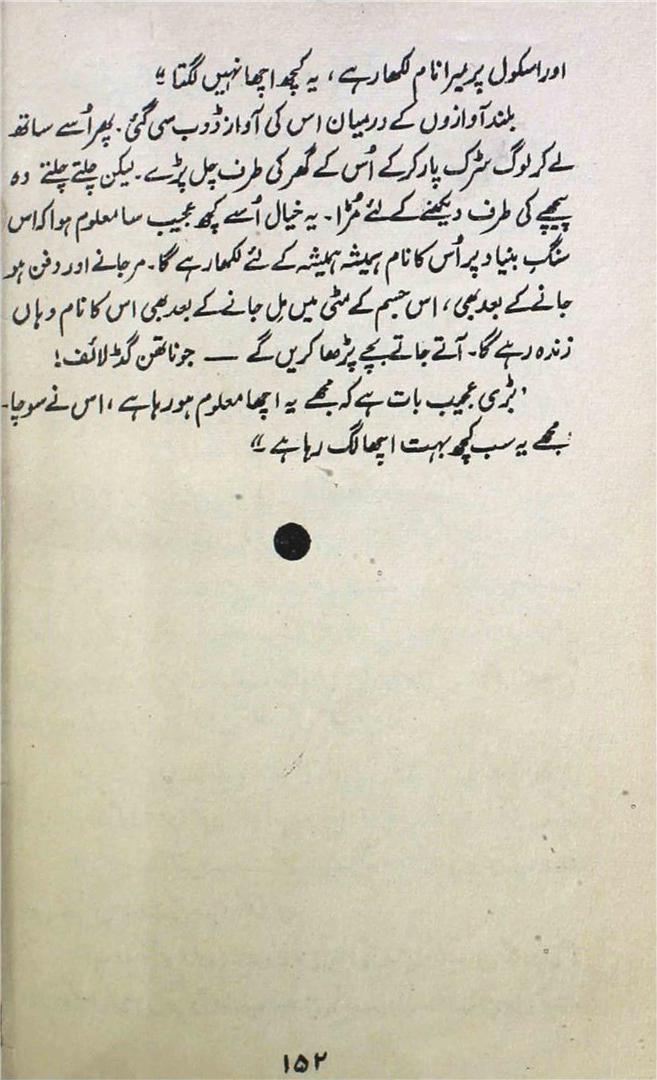 اور اسکول پر میرا نام لکھا رہے، یہ کچھ اچھا نہیں لگتا"
بلند آوازوں کے درمیان اس کی آواز ڈوب سی گئی۔ پھر اُسے ساتھ
لے کر لوگ سڑک پار کر کے اُس کے گھر کی طرف چل پڑے۔ لیکن چلتے چلتے وہ
پیچھے کی طرف دیکھنے کے لئے مُڑا۔ یہ خیال اُسے کچھ عجیب سا معلوم ہوا کہ اس
سنگِ بنیاد پر اُس کا نام ہمیشہ ہمیشہ کے لئے لکھا رہے گا۔ مر جانے اور دفن ہو
جانے کے بعد بھی، اس جسم کے مٹی میں مِل جانے کے بعد بھی اس کا نام وہاں
زندہ رہے گا۔ آتے جاتے بچے پڑھا کریں گے — جوناتھن گڈ لائف!
'بڑی عجیب بات ہے کہ مجھے یہ اچھا معلوم ہو رہا ہے، اس نے سوچا۔
مجھے یہ سب کچھ بہت اچھا لگ رہا ہے"
۱۵۲